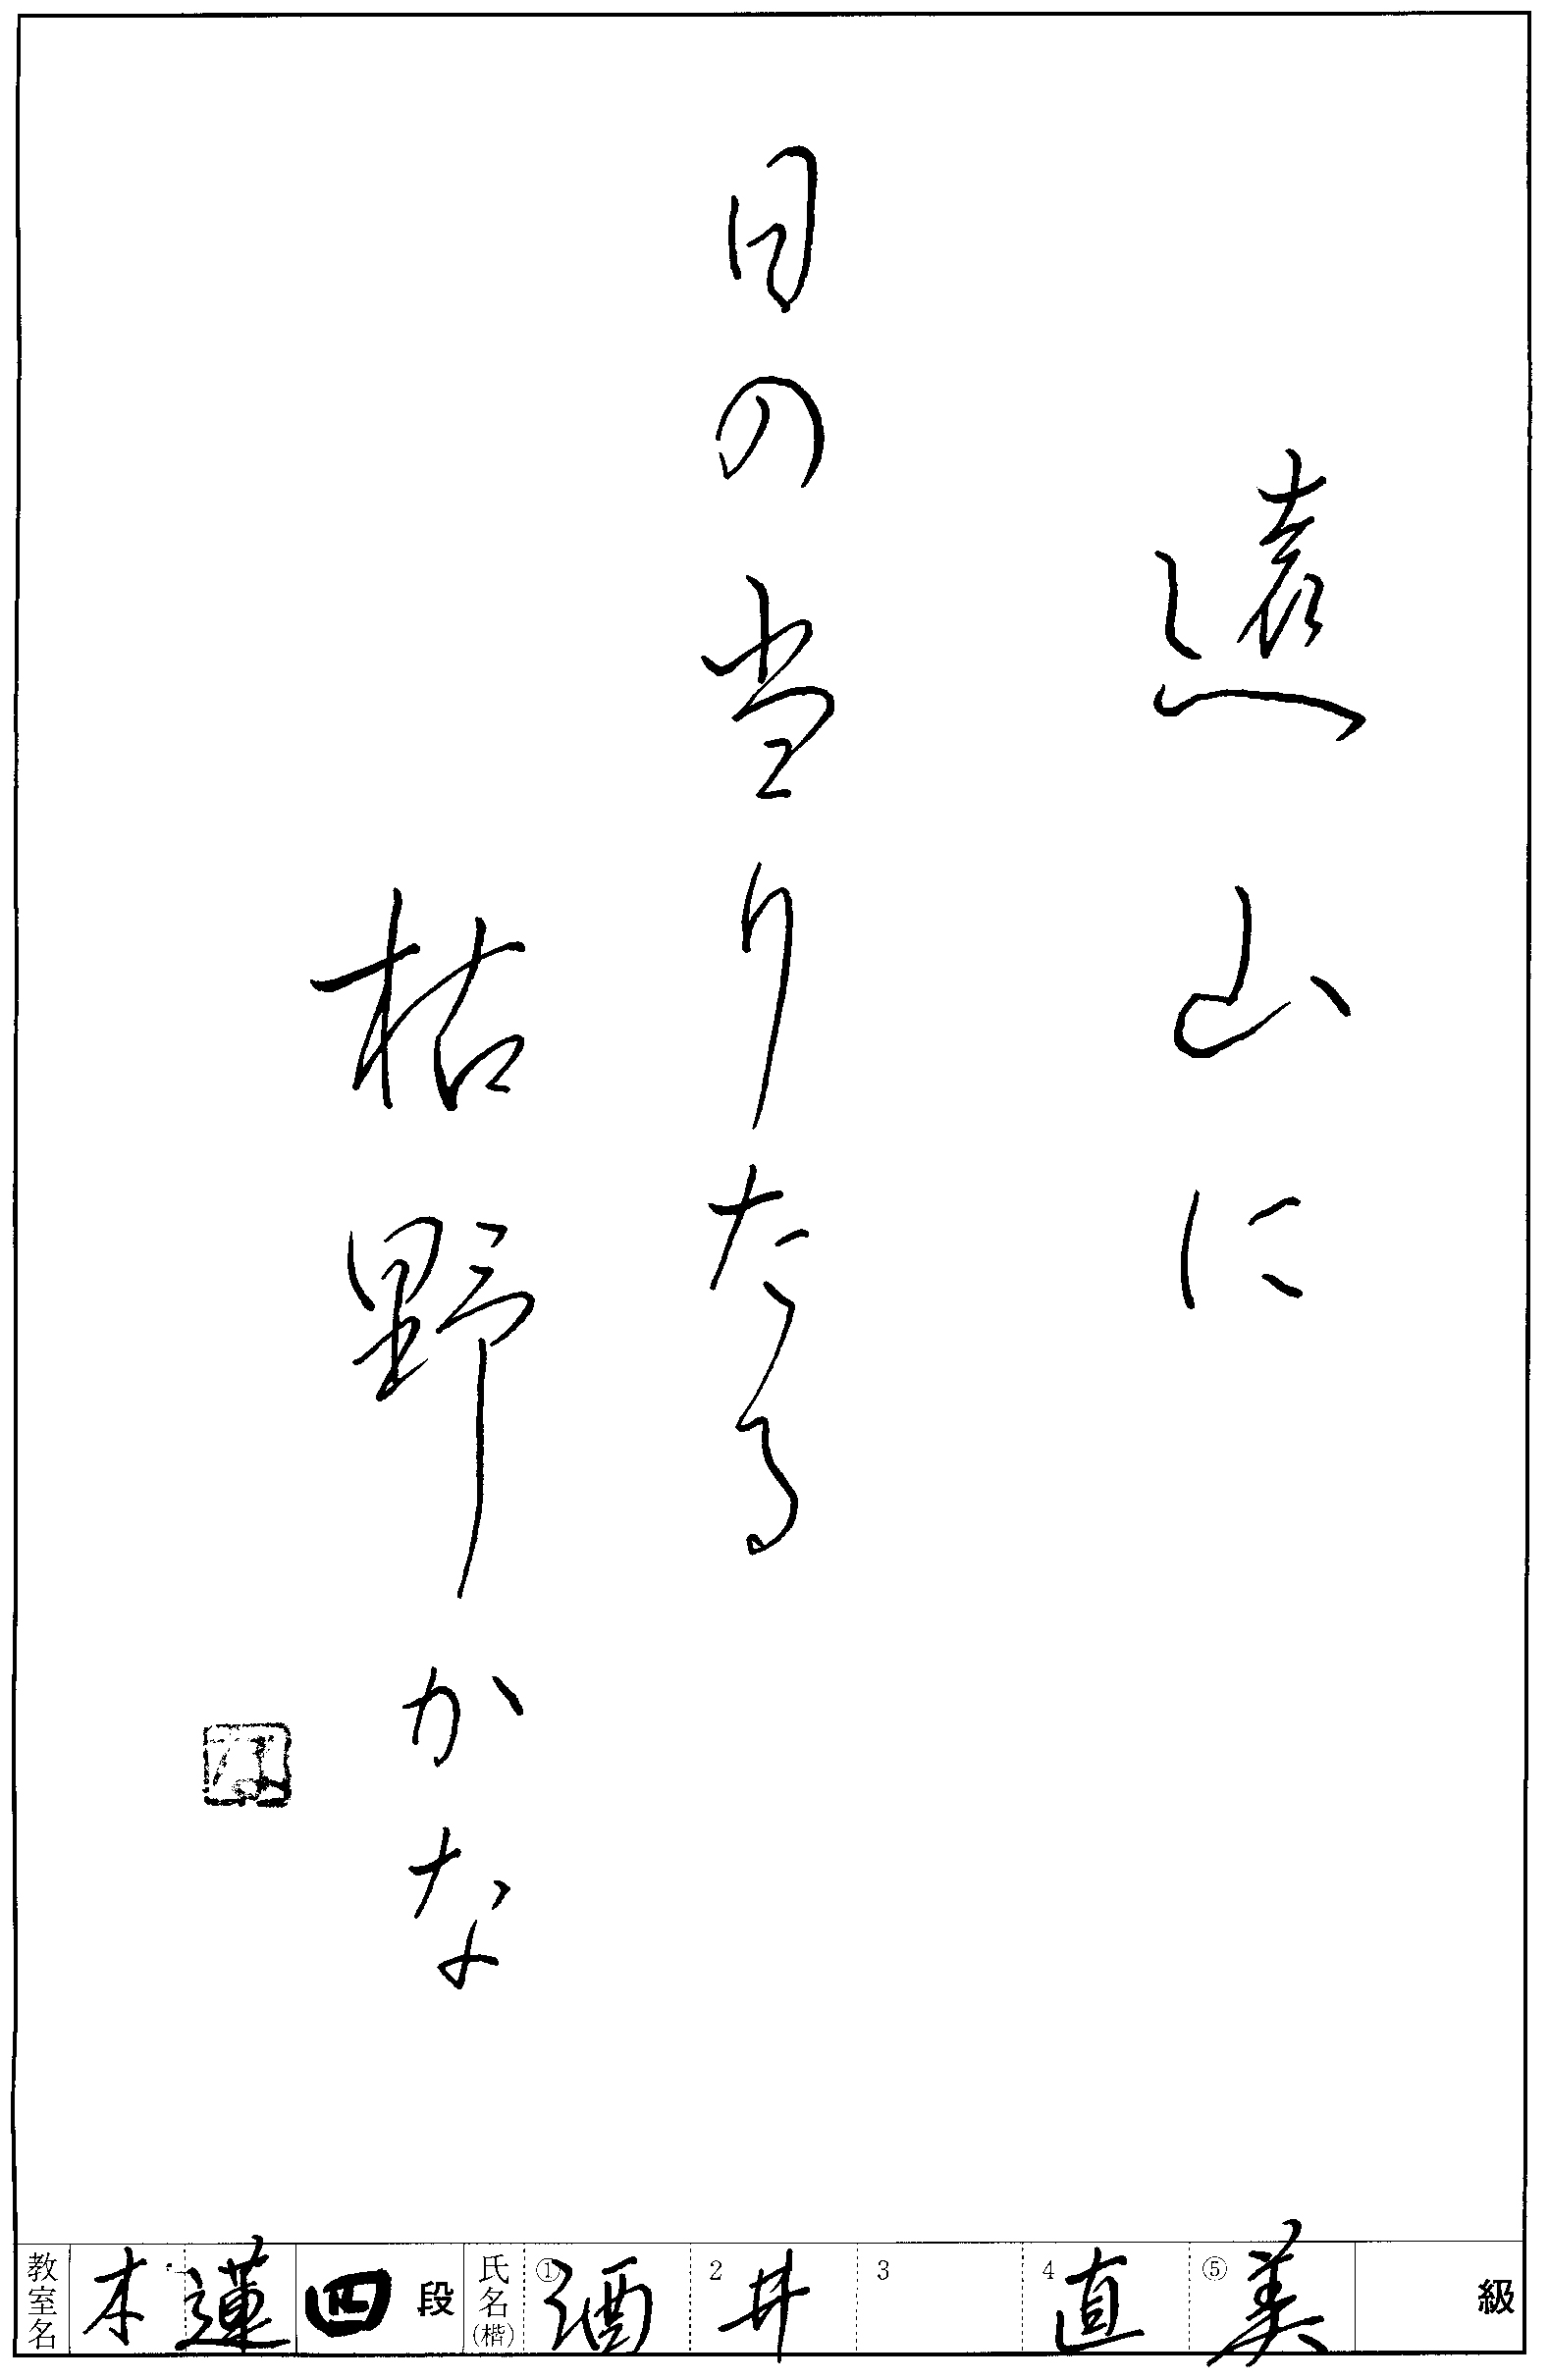 遠山に
日の当りたる
枯野かな
教室名 木蓮 四段 氏名(楷) ①酒 2井 3 4直 ⑤美 級